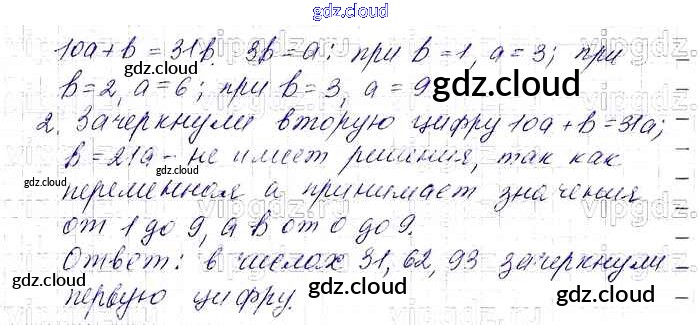 gdz.cloud
10a+b=31b. 3b=a; при b=1, a=3; при
b=2, a=6; при b=3, a=9
gdz.cloud
gdz.cloud
2. Зачеркнули вторую цифру 10a+b=31a;
b=21a - не имеет решения, так как
gdz.cloud
gdz.cloud
переменная a принимает значения
от 1 до 9, а b от 0 до 9.
gdz.cloud
Ответ: в числах 31, 62, 93 зачеркнули
gdz.cloud
первую цифру.
gdz.cloud
gdz.cloud